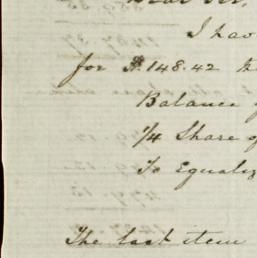 Dear Sir,
I hav
for $148.42 th
Balance of
1/4 Share of
To Equaliz
The last item